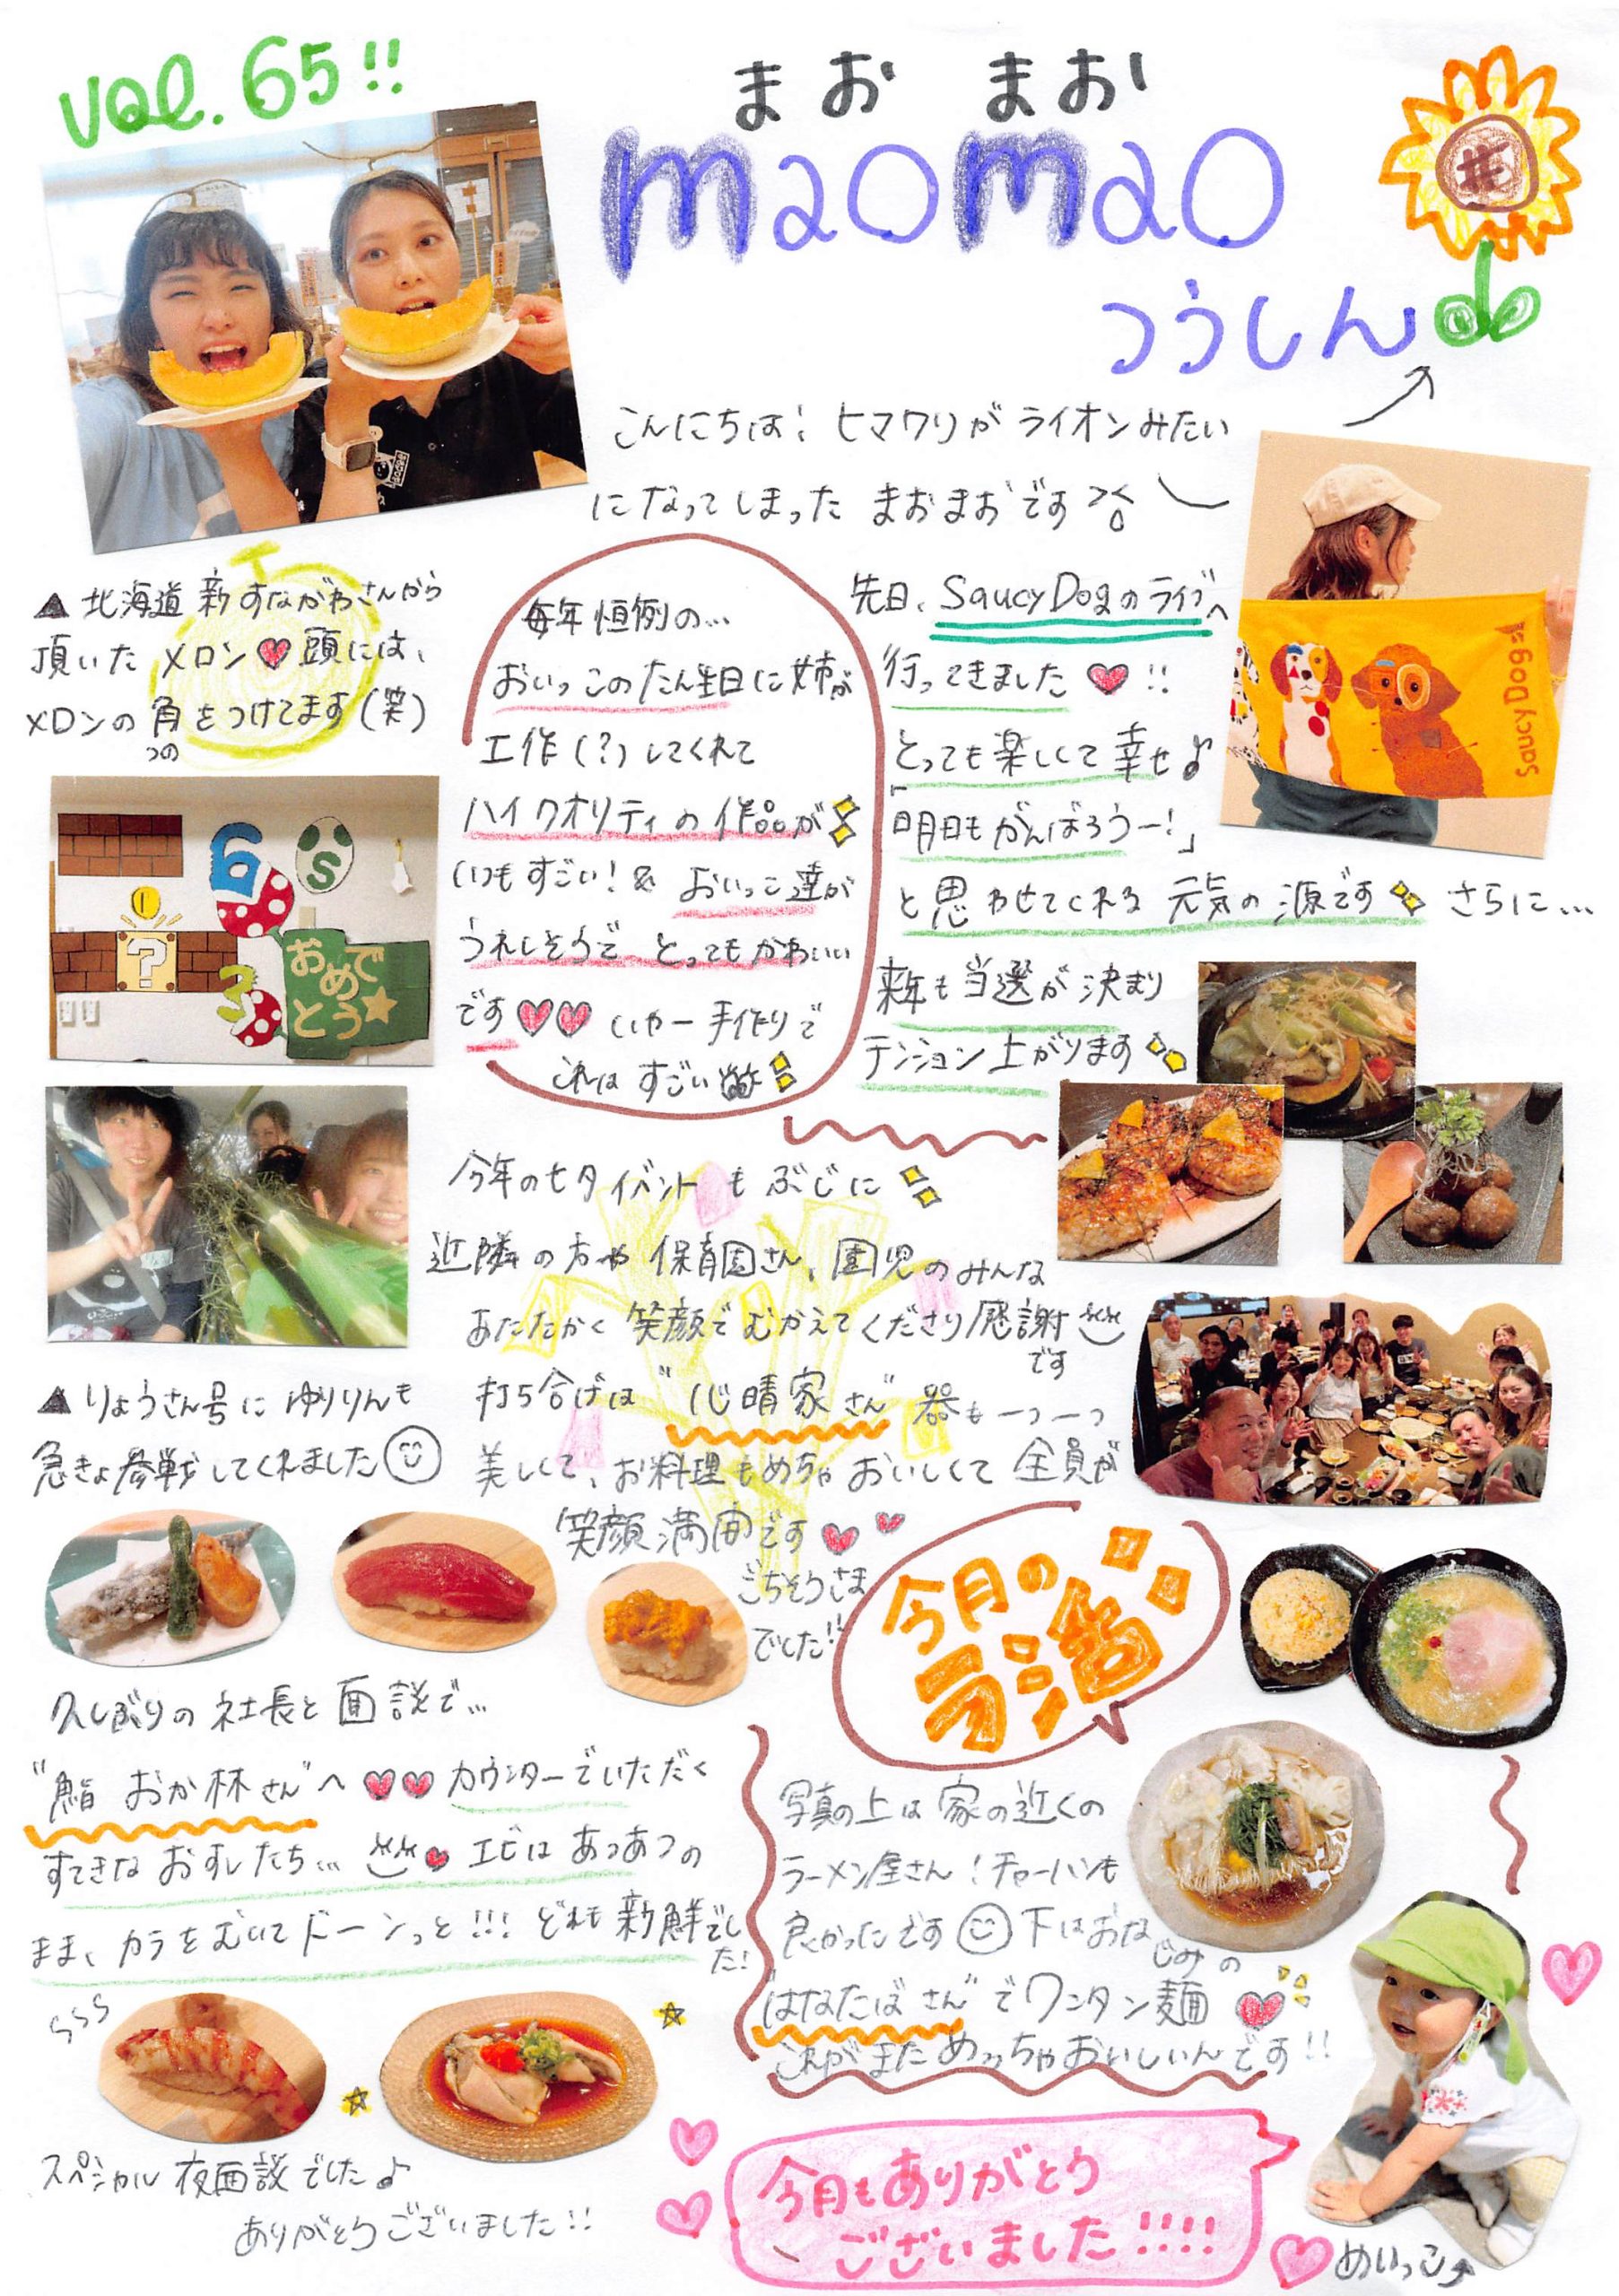 vol.65!!
まお まお
maomao
つうしん
こんにちは! ヒマワリが ライオンみたい
になってしまった まおまおです
▲ 北海道 新すながわさんから
頂いた メロン♥ 頭には、
メロンの 角をつけてます(笑)
つの
毎年恒例の…
おいっこのたん生日に姉が
工作(?)してくれて
ハイクオリティの作品が
いつもすごい!& おいっこ達が
うれしそうで とってもかわいい
です♥♥ いやー手作りで
これは すごい
先日、SaucyDogのライブへ
行ってきました♥!!
とっても楽しくて幸せ♪
「明日もがんばろうー!」
と思わせてくれる 元気の源です さらに…
来年も当選が決まり
テンション上がります
SaucyDog
6
S
?
3
おめで
とう
今年の七夕イベントも ぶじに
近隣の方や 保育園さん、園児のみんな
あたたかく 笑顔でむかえてくださり感謝
です
打ち合げは"心晴家さん" 器も一つ一つ
美しくて、お料理もめちゃ おいしくて 全員が
笑顔 満開です♥♥
ごちそうさま
でした!!
▲ りょうさん号に ゆりりんも
急きょ参戦してくれました
久しぶりの 社長と 面談で…
"鮨 おか林さん"へ ♥♥ カウンターでいただく
すてきな おすしたち… ♥ エビは あつあつの
まま、カラをむいてドーンっと!!! どれも新鮮でし
た!
sss
スペシャル 夜面談でした♪
ありがとうございました!!
今月の
ラ活
写真の上は 家の近くの
ラーメン屋さん!チャーハンも
良かったです 下はおなじみの
"はなたばさん"でワンタン麺♥
これがまためっちゃおいしいんです!!
今月もありがとう
ございました!!!!
めいっこ